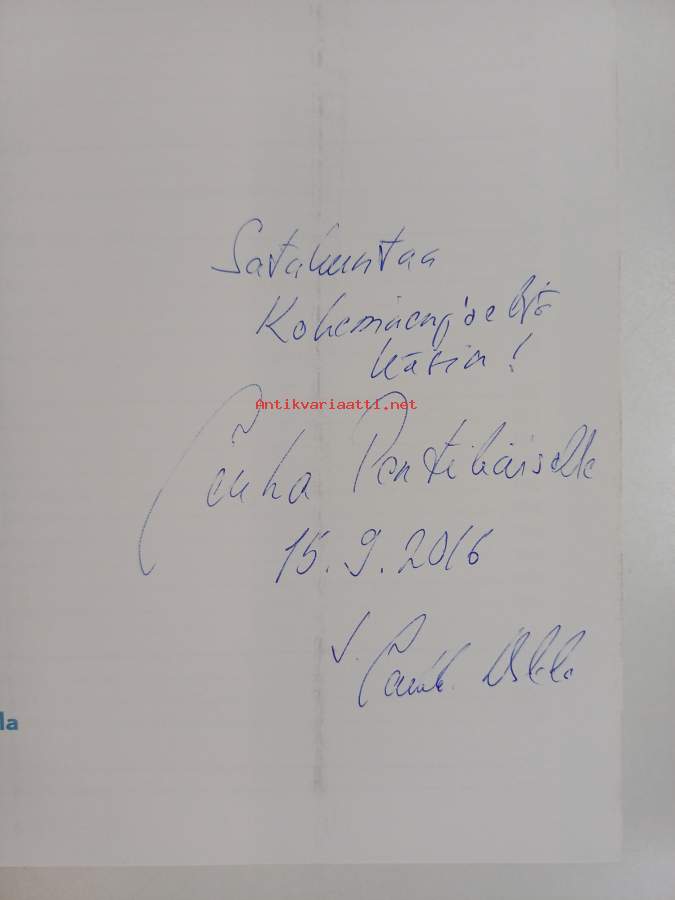 Satakuntaa
Kokemäenjoelta
käsin!
Antikvariaatti.net
Juha Pentikäiselle
15.9.2016
la